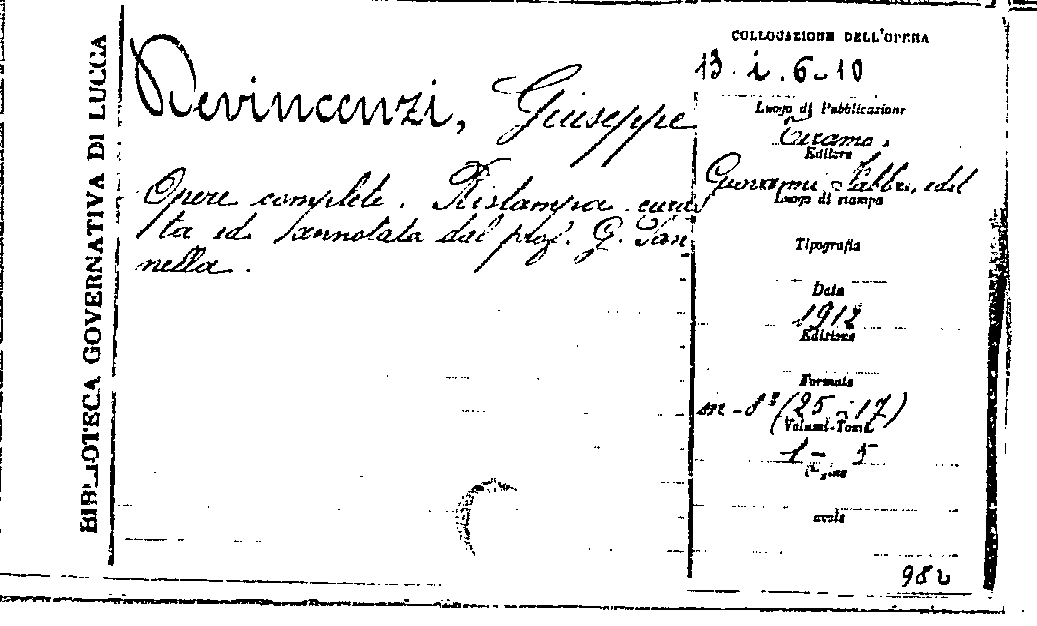 BIBLIOTECA GOVERNATIVA DI LUCCA
Devincenzi, Giuseppe
Opere complete. Ristampa cura
ta ed annotata dal prof. G. Pan
nella.
COLLOCAZIONE DELL'OPERA
13. i. 6-10
Luogo di Pubblicazione
Teramo,
Editore
Giovanni Fabbri, edit
Luogo di stampa
Tipografia
Data
1912
Edizione
Formato
in-8° (25-17)
Volumi-Tomi
1- 5
Pagine
982